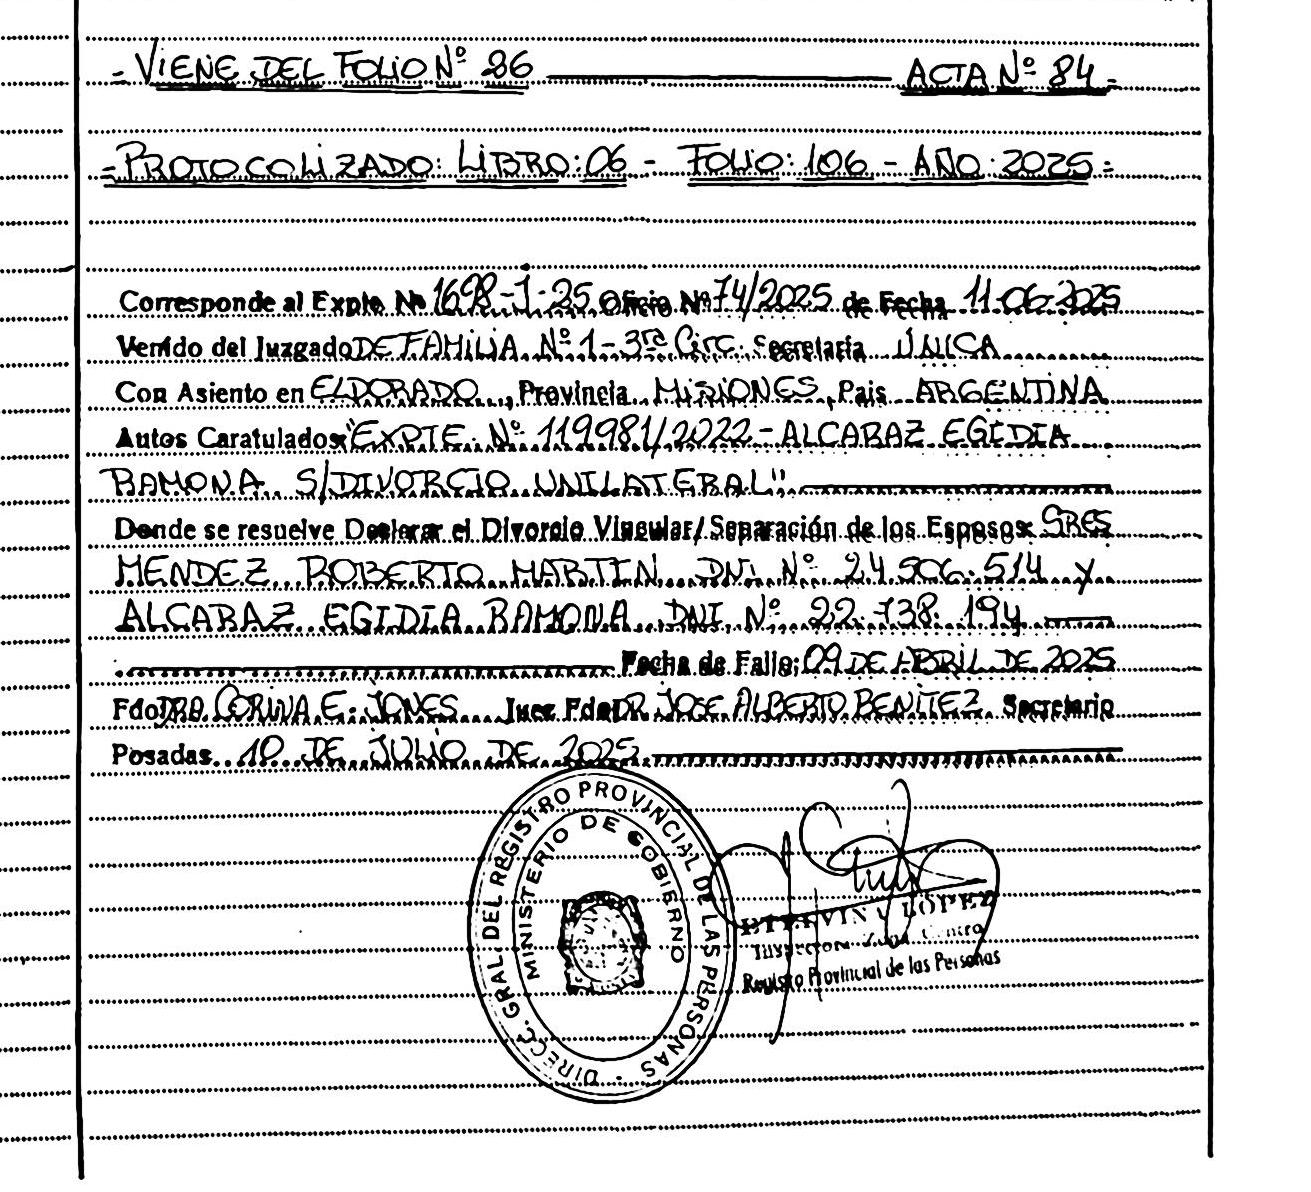 = VIENE DEL FOLIO Nº 86 ACTA Nº 84 =
= PROTOCOLIZADO: LIBRO: 06 - FOLIO: 106 - AÑO: 2025 =
Corresponde al Expte Nº 1698-J-25 Oficio Nº 74/2025 de Fecha 11-06-2025
Venido del Juzgado DE FAMILIA Nº 1 - 3ra Circ. Secretaria ÚNICA
Con Asiento en ELDORADO, Provincia MISIONES, Pais ARGENTINA
Autos Caratulados: "EXPTE. Nº 119981/2022 - ALCARAZ EGIDIA
RAMONA S/DIVORCIO UNILATERAL"
Donde se resuelve Declarar el Divorcio Vincular/Separación de los Esposos: SRES
MENDEZ ROBERTO MARTIN DNI Nº 24.506.514 y
ALCARAZ EGIDIA RAMONA DNI Nº 22.738.194
Fecha de Fallo: 09 DE ABRIL DE 2025
Fdo: DRA CORINA E. JONES Juez Fdo: DR JOSE ALBERTO BENITEZ Secretario
Posadas 10 DE JULIO DE 2025
DIRECC. GRAL. DEL REGISTRO PROVINCIAL DE LAS PERSONAS
MINISTERIO DE GOBIERNO
ETELVINA LOPEZ
Inspectora Zona Centro
Registro Provincial de las Personas